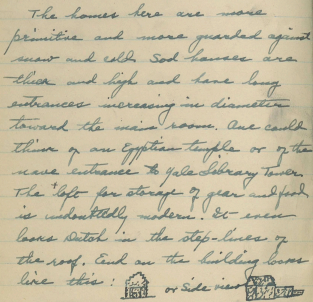 The homes here are more
primitive and more guarded against
snow and cold. Sod houses are
thick and high and have long
entrances increasing in diameter
toward the main room. One could
think of an Egyptian temple or of the
nave entrance to Yale Library Tower.
The loft for storage of gear and food
is undoubtedly modern. It even
looks Dutch in the step-lines of
the roof. End on the building looks
like this: or side view